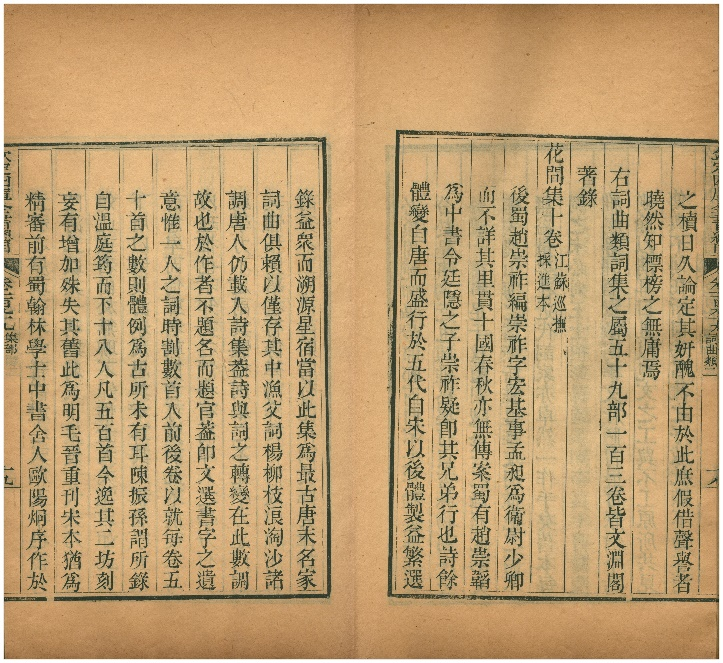 之牘日久論定其妍醜不由於此庶假借聲譽者
曉然知標榜之無庸焉
右詞曲類詞集之屬五十九部一百三卷皆文淵閣
著錄
花間集十卷 江蘇巡撫採進本
後蜀趙崇祚編崇祚字宏基事孟昶為衛尉少卿
而不詳其里貫十國春秋亦無傳案蜀有趙崇韜
為中書令廷隱之子崇祚疑卽其兄弟行也詩餘
體變自唐而盛行於五代自宋以後體製益繁選
錄益衆而溯源星宿當以此集為最古唐末名家
詞曲俱賴以僅存其中漁父詞楊柳枝浪淘沙諸
調唐人仍載入詩集蓋詩與詞之轉變在此數調
故也於作者不題名而題官蓋卽文選書字之遺
意惟一人之詞時割數首入前後卷以就每卷五
十首之數則體例為古所未有耳陳振孫謂所錄
自溫庭筠而下十八人凡五百首今逸其二坊刻
妄有增加殊失其舊此為明毛晉重刊宋本猶為
精審前有蜀翰林學士中書舍人歐陽炯序作於